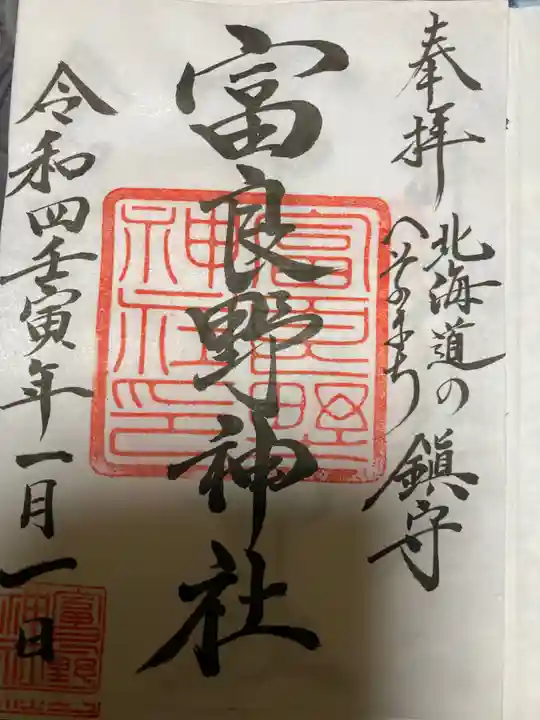 奉拝
北海道の
へそのまち
鎮守
富良野神社
富良野
神社印
令和四壬寅年一月一日
富良野
神社